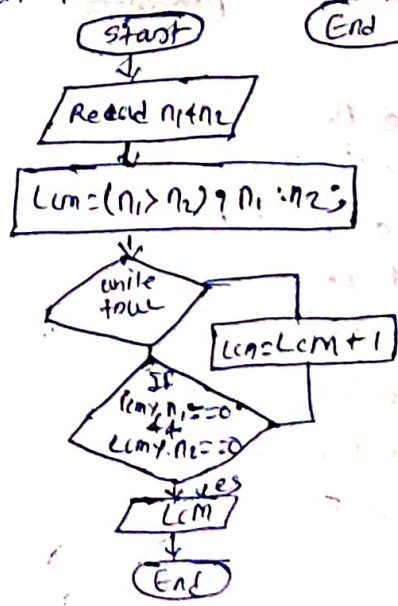 Start
End
Read n1 & n2
Lcm=(n1>n2)? n1 :n2;
while
true
Lcm=LCM+1
If
Lcm%n1==0
&&
Lcm%n2==0
yes
LCM
End